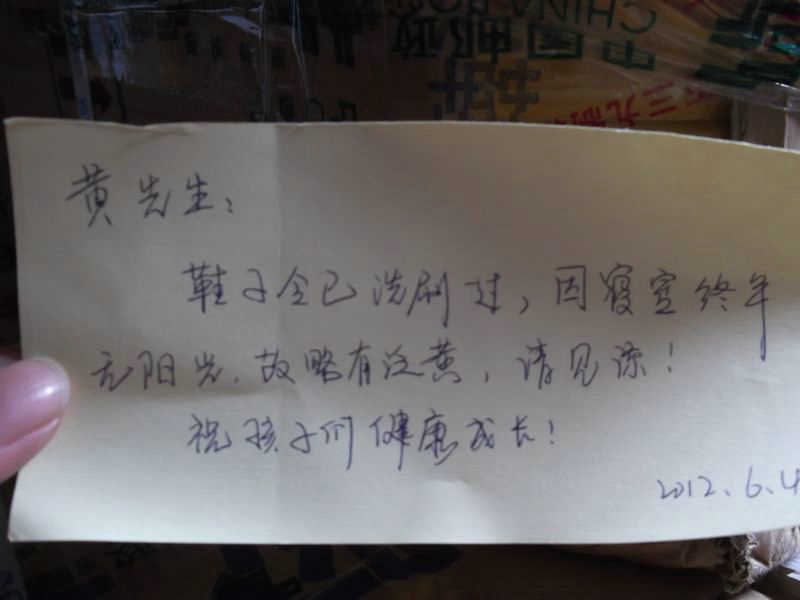 CHINA POS
中国邮政
黄先生：
鞋子全已洗刷过，因寝室终年
无阳光，故略有泛黄，请见谅！
祝孩子们健康成长！
2012.6.4